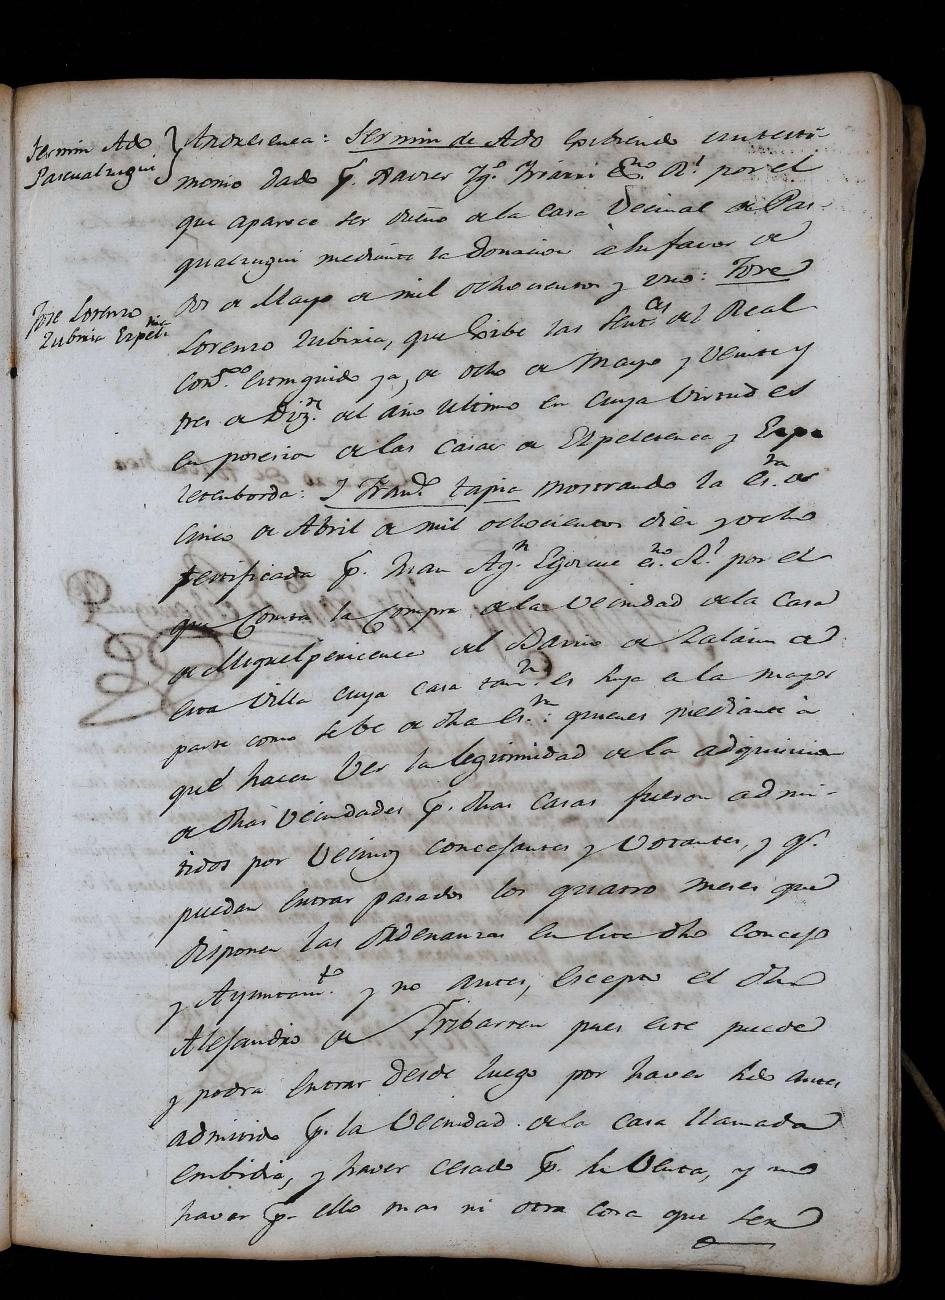 Fermin Ado
Pascualzugui
Jose Lorenzo
Zubiria Ezpele
Andresenea: Fermin de Ado exibiendo un testi-
monio dado p.r Xavier Ig.o Iriarri Es.no R.l por el
que aparece ser dueño de la casa Vecinal de Pas-
qualzugui mediante la Donacion à su favor de
Dos de Mayo de mil ochocientos y uno: Jose
Lorenzo Zubiria, que exibe las Sent.as del Real
Con.o extinguido ya, de ocho de Mayo y Veinte y
tres de Diz.e del año ultimo en cuya Virtud es
en posesion de las casas de Ezpelerenea y Ezpe
letenborda: I Fran.co tapia mostrando la es.ra de
cinco de Abril de mil ochocientos diez y ocho
testificada p.r Juan Ag.n es.no R.l por el
que Consta la Compra de la Vecindad de la casa
de Miguelpericenea del Barrio de Zalain de
esta Villa cuya casa tam.n es suya en la mayor
parte como se ve de dha es.ra: quienes mediante à
que hacen Ver la legitimidad de la adquisicion
de dhas Vecindades p.r dhas casas fueron admi-
tidos por Vecinos concejantes y Votantes, y q.e
puedan entrar pasados los quatro meses que
disponen las Ordenanzas en este dho Concejo
y Ayuntam.to y no antes, escepto el dho
Alejandro de Iribarren pues este puede
y podra entrar desde luego por haver sido antes
admitido p.r la Vecindad de la casa llamada
embidia, y haver cesado p.r su Venta, y no
haver p.r ello mas ni otra cosa que sea